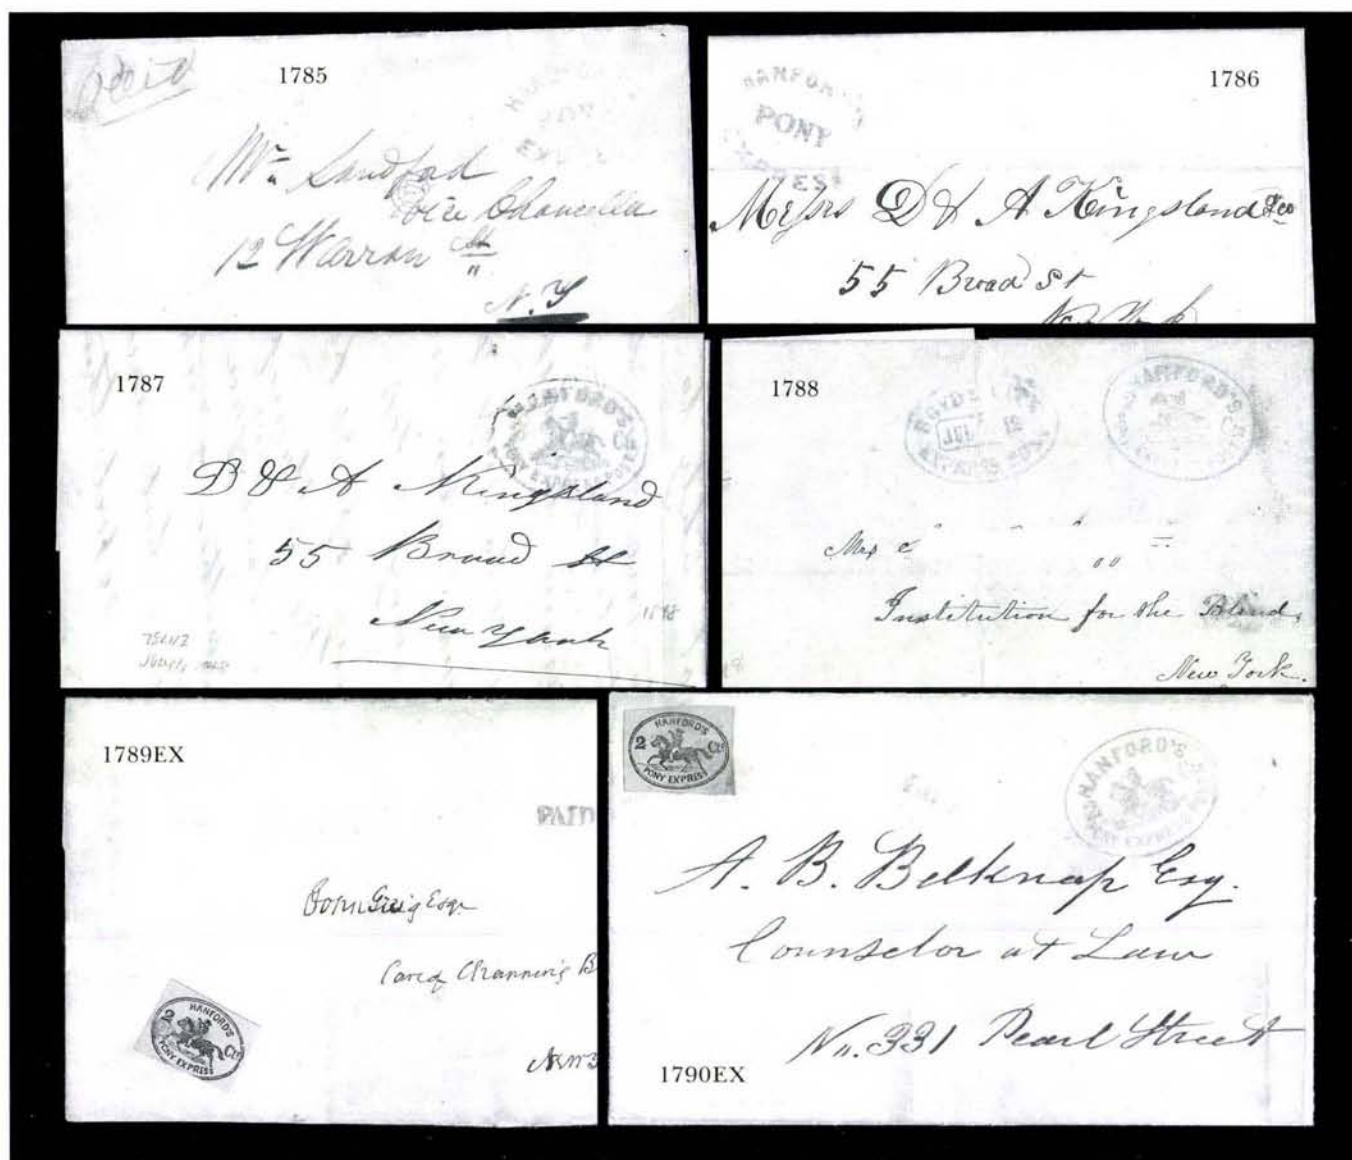 1785
Paid
HANFORD'S
PONY
EXPRESS
Mr. Sandford
Vice Chancellor
12 Warren St
N.Y
1786
HANFORD'S
PONY
EXPRESS
Messrs D & A Kingsland & Co
55 Broad St
New York
1787
HANFORD'S
2 Cts
PONY EXPRESS
D & A Kingsland
55 Broad St
New York
1788
BOYD'S CITY
JUL 12
EXPRESS POST
HANFORD'S
PONY EXPRESS
Institution for the Blind,
New York.
1789EX
PAID
John Greig Esqr
Care of Channing B
New Y
HANFORD'S
2 Cts
PONY EXPRESS
HANFORD'S
2 Cts
PONY EXPRESS
HANFORD'S
PONY EXPRESS
A. B. Belknap Esq.
Counselor at Law
No. 331 Pearl Street
1790EX